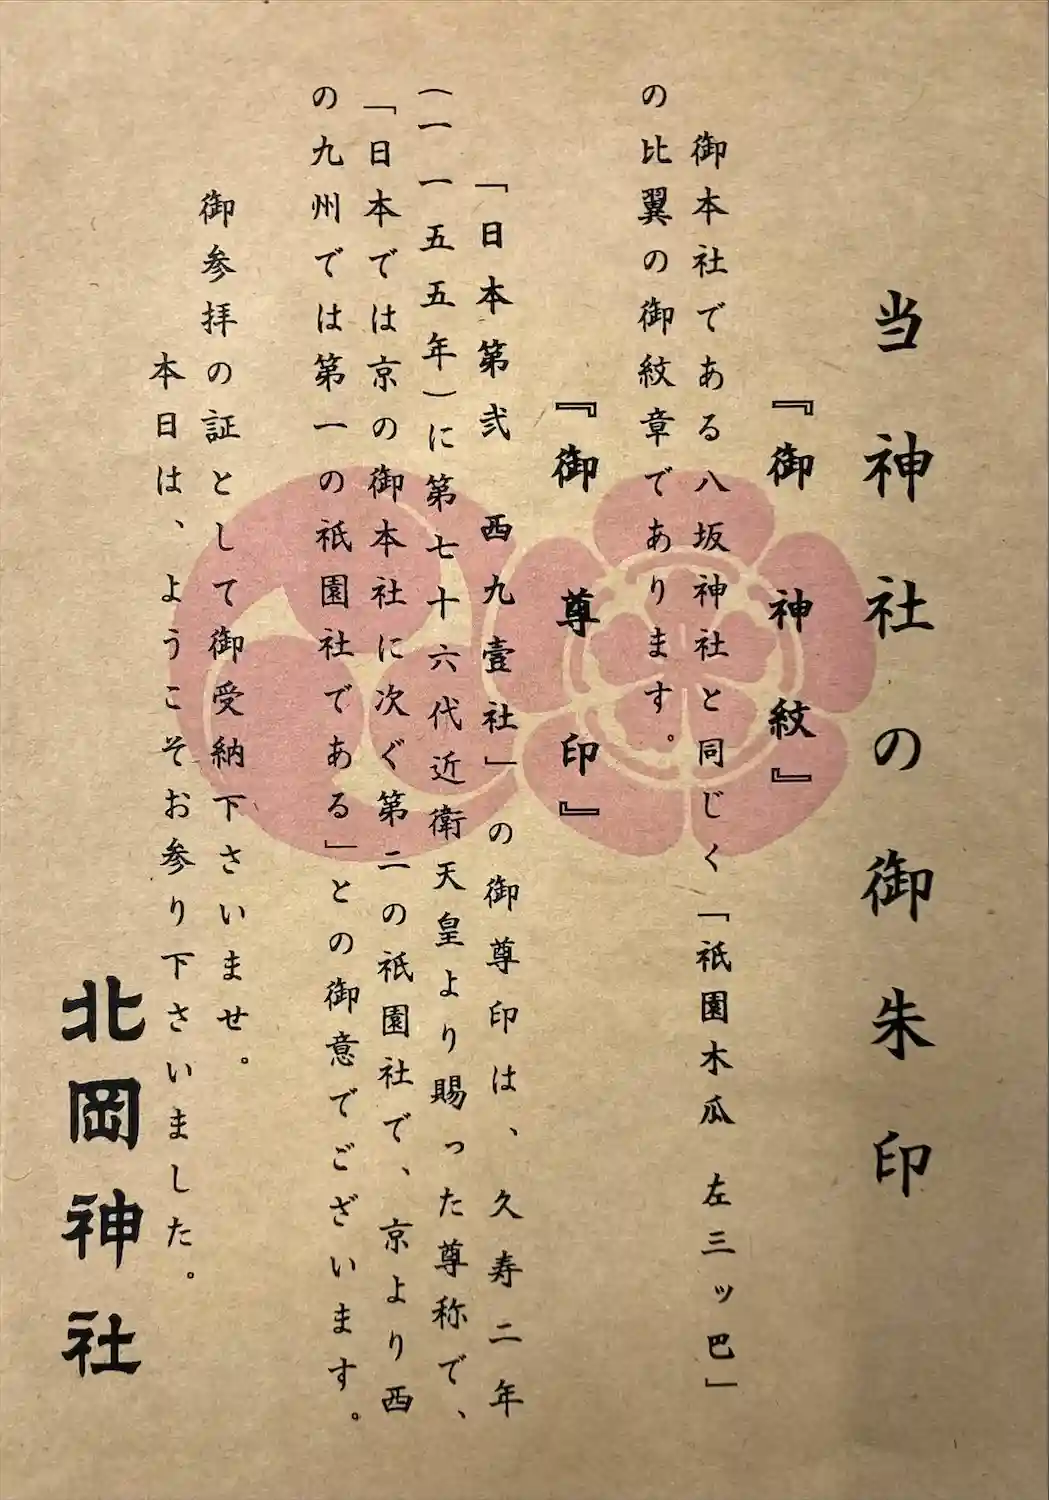 当神社の御朱印
『御神紋』
御本社である八坂神社と同じく「祇園木瓜 左三ッ巴」
の比翼の御紋章であります。
『御尊印』
「日本第弐 西九壹社」の御尊印は、久寿二年
(一一五五年)に第七十六代近衛天皇より賜った尊称で、
「日本では京の御本社に次ぐ第二の祇園社で、京より西
の九州では第一の祇園社である」との御意でございます。
御参拝の証として御受納下さいませ。
本日は、ようこそお参り下さいました。
北岡神社